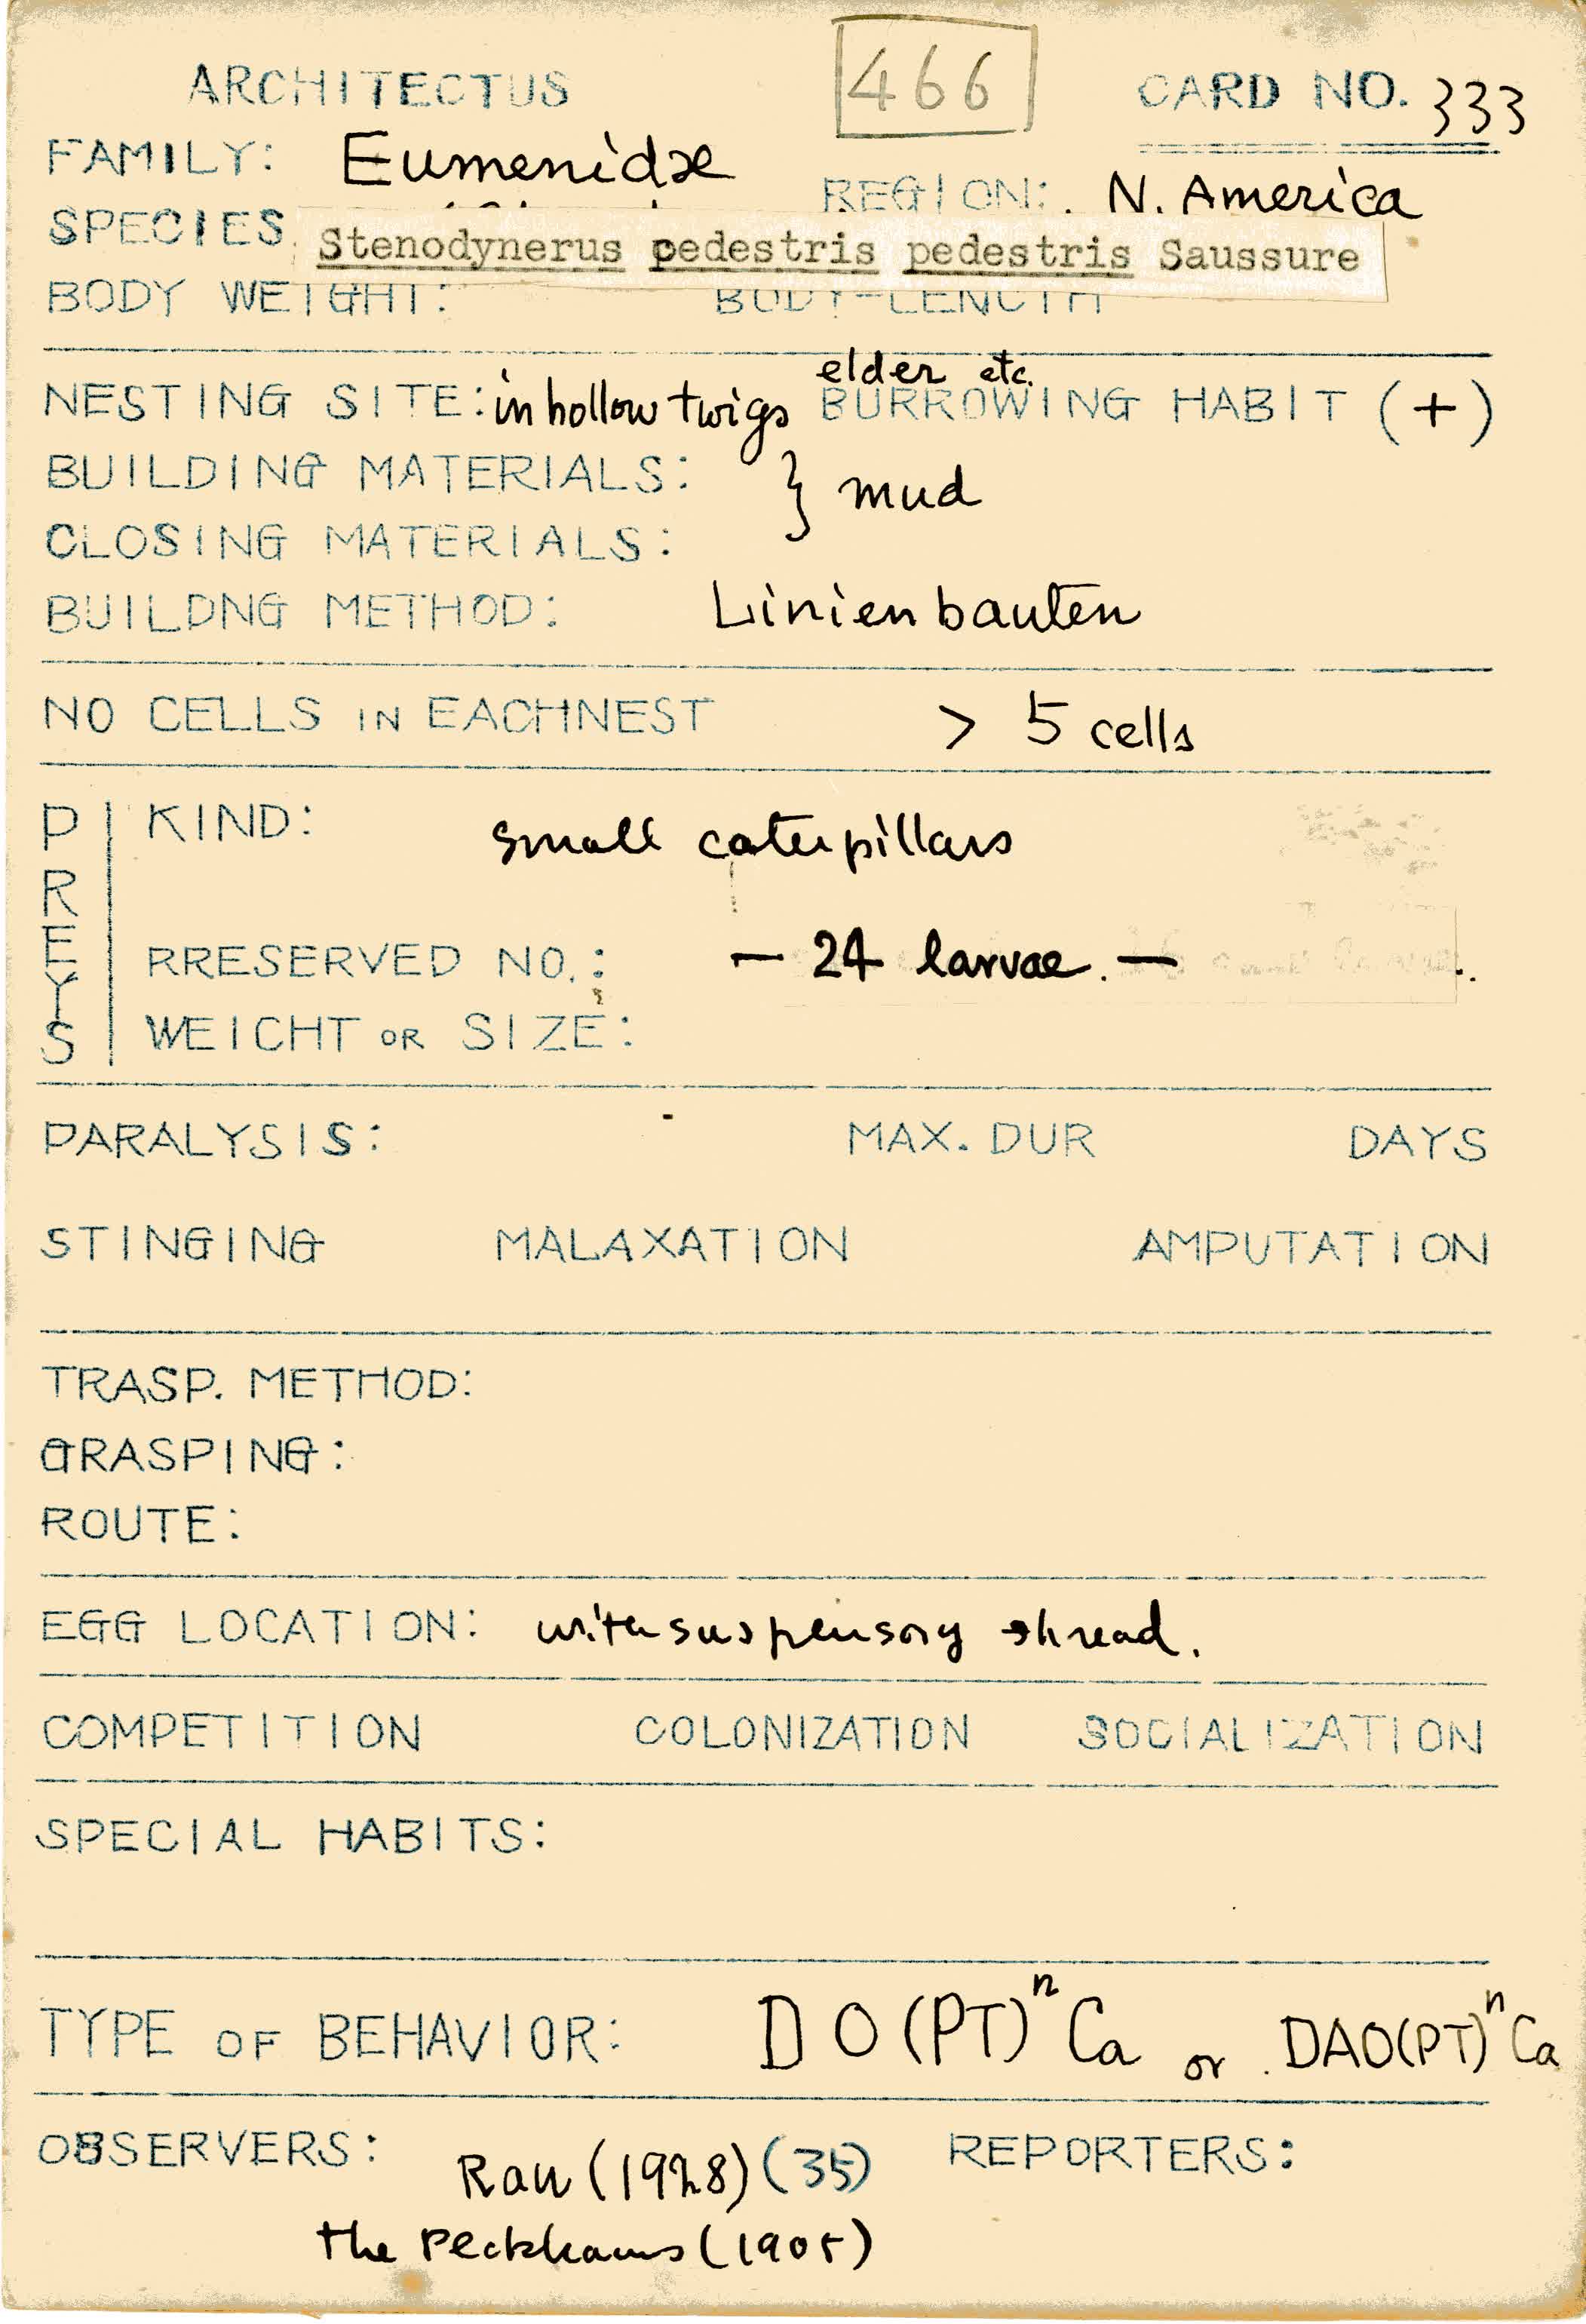 466
ARCHITECTUS CARD NO. 333
FAMILY: Eumenidae REGION: N. America
SPECIES Stenodynerus pedestris pedestris Saussure
BODY WEIGHT: BODY-LENGTH
elder etc.
NESTING SITE: in hollow twigs BURROWING HABIT (+)
BUILDING MATERIALS: } mud
CLOSING MATERIALS:
BUILDNG METHOD: Linienbauten
NO CELLS IN EACHNEST > 5 cells
PREYS
KIND: small caterpillars
RRESERVED NO.: — 24 larvae. —
WEICHT OR SIZE:
PARALYSIS: MAX. DUR DAYS
STINGING MALAXATION AMPUTATION
TRASP. METHOD:
GRASPING:
ROUTE:
EGG LOCATION: with suspensory thread.
COMPETITION COLONIZATION SOCIALIZATION
SPECIAL HABITS:
TYPE OF BEHAVIOR: DO(PT)ⁿCa or DAO(PT)ⁿCa
OBSERVERS: Rau (1928) (35) REPORTERS:
the Peckhams (1905)